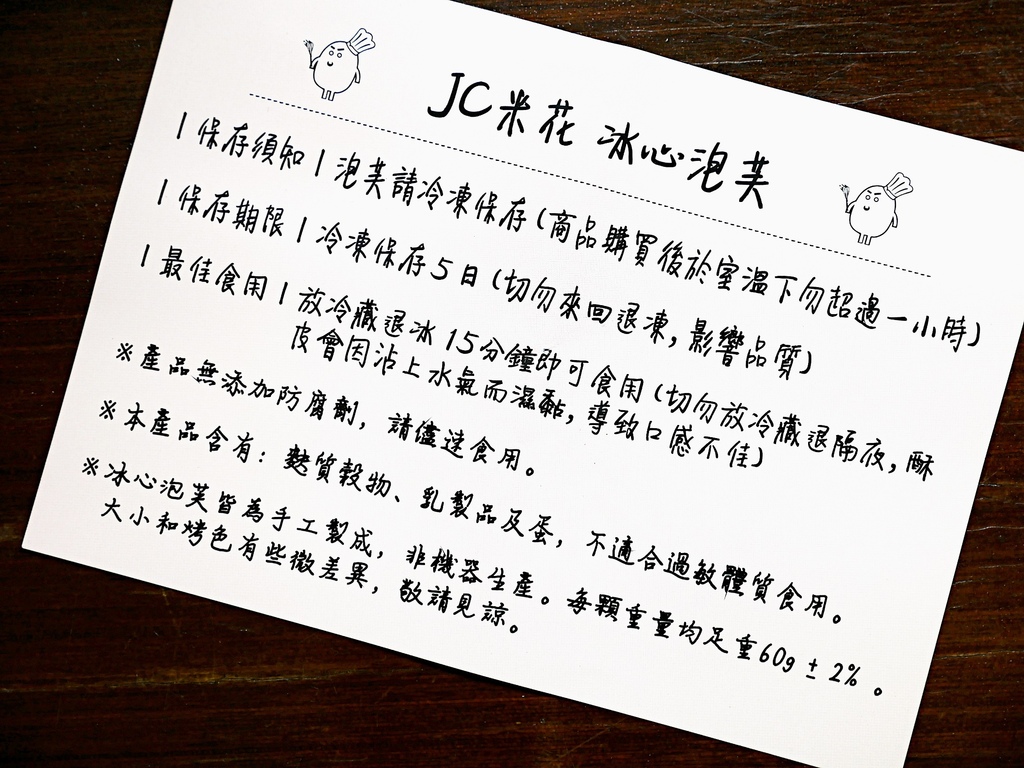 JC米花 冰心泡芙
| 保存須知 | 泡芙請冷凍保存(商品購買後於室溫下勿超過一小時)
| 保存期限 | 冷凍保存5日(切勿來回退凍,影響品質)
| 最佳食用 | 放冷藏退冰 15分鐘即可食用(切勿放冷藏退隔夜,酥
皮會因沾上水氣而濕黏,導致口感不佳)
※產品無添加防腐劑, 請儘速食用。
※本產品含有: 麩質穀物、乳製品及蛋, 不適合過敏體質食用。
※冰心泡芙皆為手工製成, 非機器生產。每顆重量均足重60g ± 2% 。
大小和烤色有些微差異, 敬請見諒。